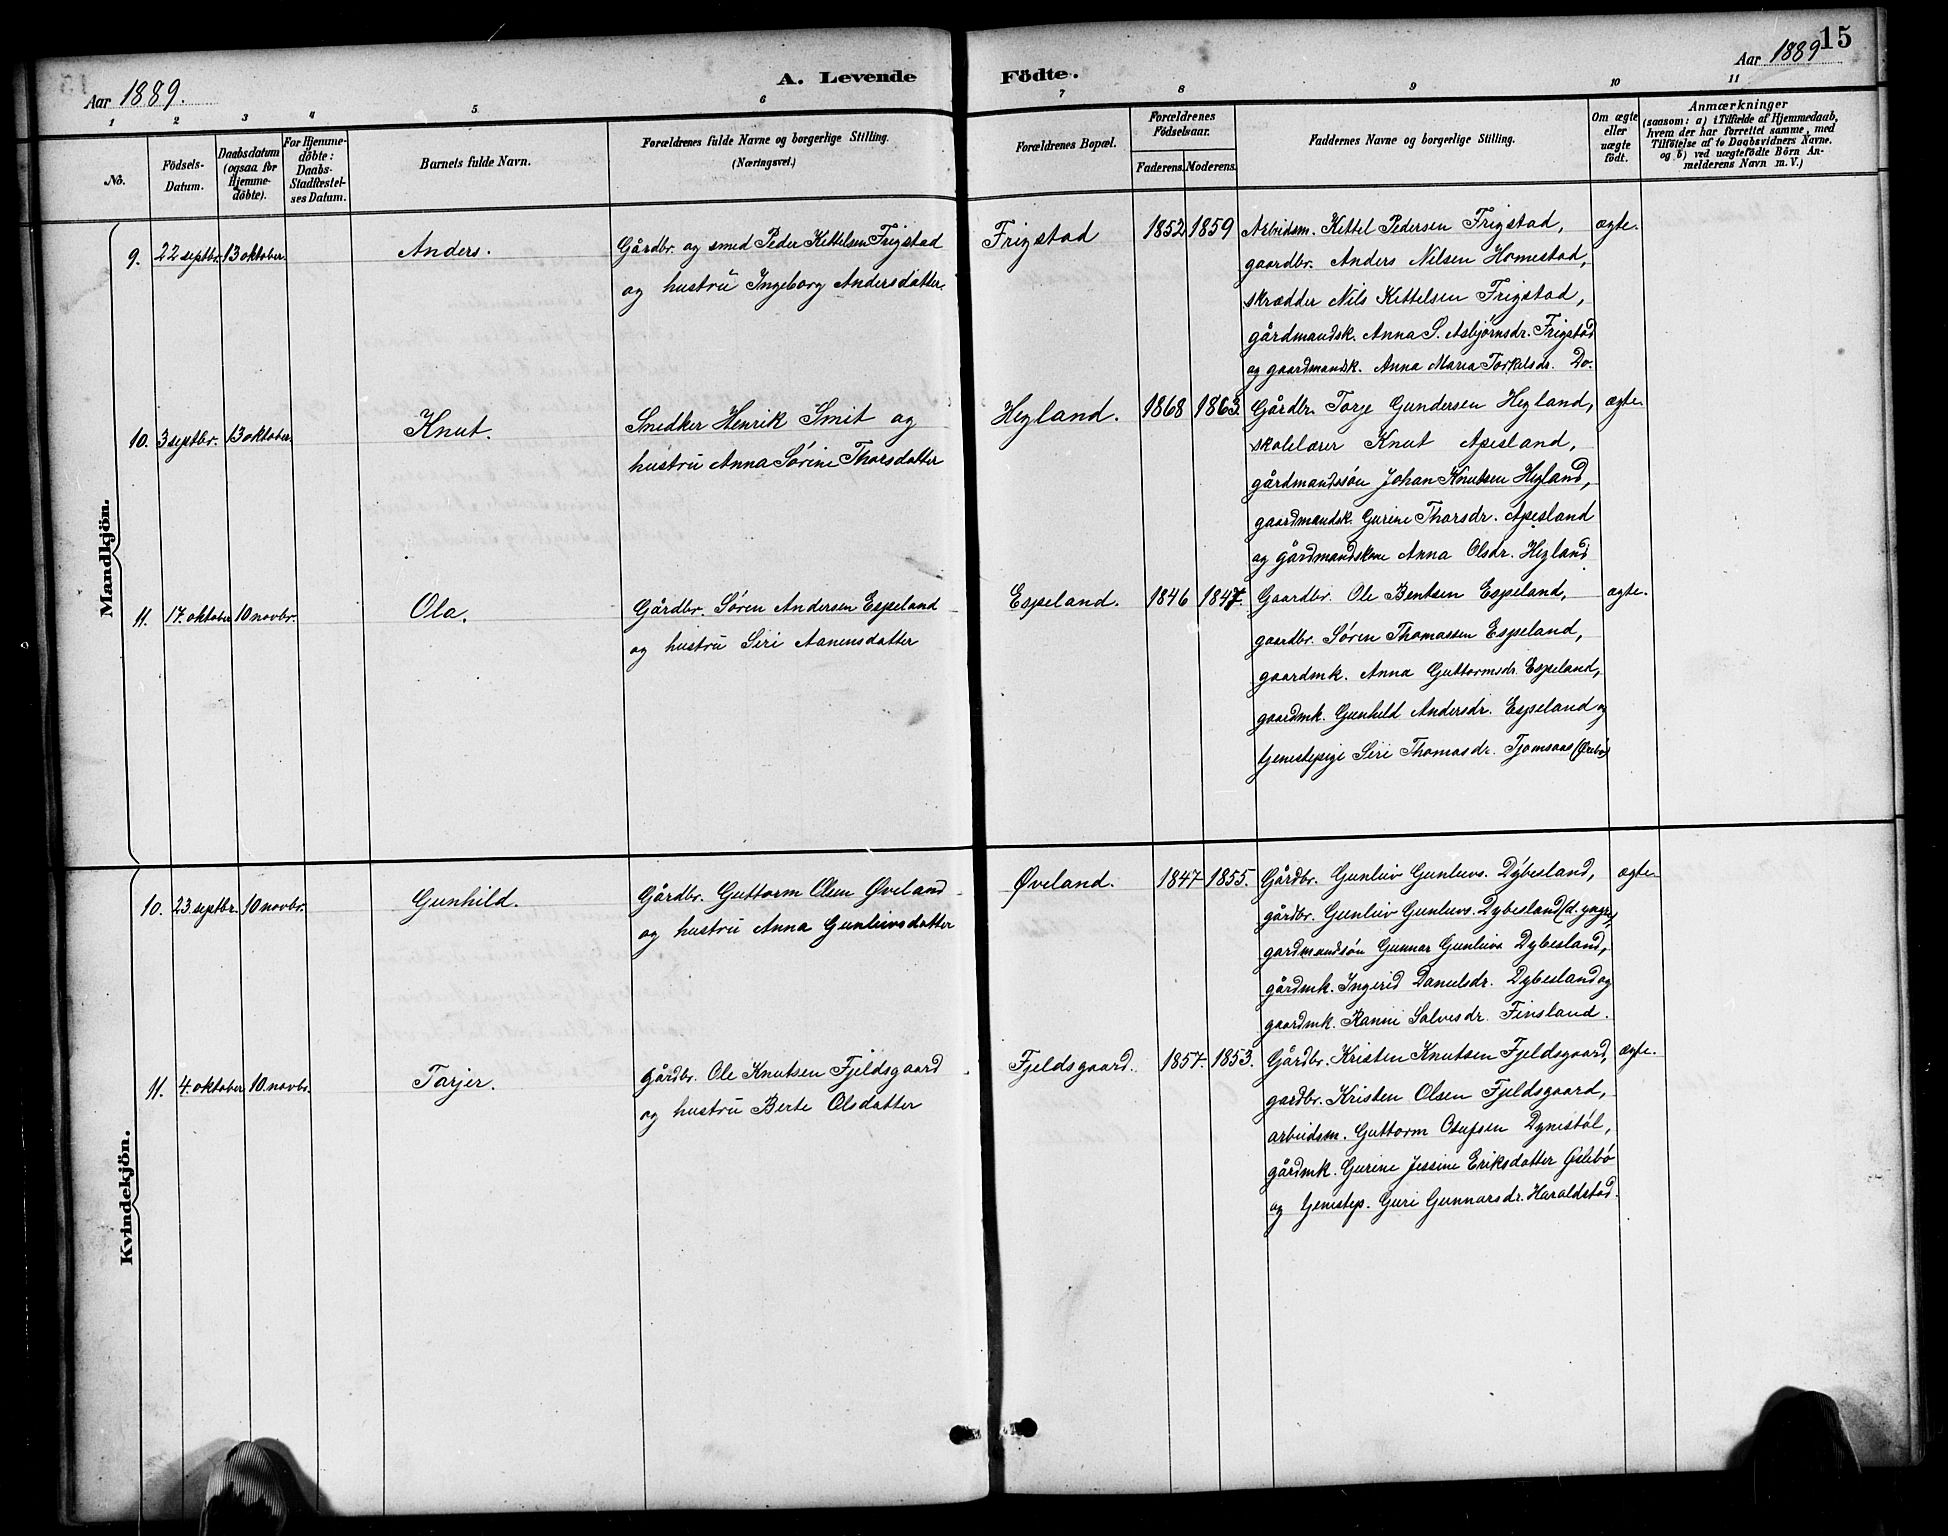 15
Aar 1889.
A. Levende Födte.
Aar 1889
1 2 3 4 5 6 7 8 9 10 11
No.
Födsels-Datum.
Daabsdatum (ogsaa for Hjemmedöbte).
For Hjemmedöbte: Daabs-Stadfæstelses Datum.
Barnets fulde Navn.
Forældrenes fulde Navne og borgerlige Stilling.
(Næringsvei.)
Forældrenes Bopæl.
Forældrenes Födselsaar.
Faderens. Moderens.
Faddernes Navne og borgerlige Stilling.
Om ægte eller uægte födt.
Anmærkninger
(saasom: a) i Tilfælde af Hjemmedaab,
hvem der har forrettet samme, med
Tilföielse af to Daabsvidners Navne.
og b) ved uægtefödte Börn An-
melderens Navn m. V.)
Mandkjön.
9. 22 septbr. 13 oktober. Anders. Gårdbr. og smed Peder Kettelsen Frigstad
og hustru Ingeborg Andersdatter.
Frigstad 1852 1859 Arbeidsm. Kettel Pedersen Frigstad, ægte.
gaardbr. Anders Nilsen Homestad,
skrædder Nils Kettelsen Frigstad,
gårdmandsk. Anna S. Asbjørnsdr. Frigstad
og gaardmandsk. Anna Maria Torkelsdr. Do.
10. 3 septbr. 13 oktober. Knut. Snedker Henrik Smit og
hustru Anna Sørine Thorsdatter
Hegland. 1868 1863. Gårdbr. Torje Gundersen Hegland, ægte.
skolelærer Knut Apesland,
gårdmandssön Johan Knutsen Hegland,
gaardmandsk. Gurine Thorsdr. Apesland
og gårdmandskone Anna Olsdr. Hegland.
11. 17. oktober 10 novbr. Ola. Gårdbr. Søren Andersen Espeland
og hustru Siri Aanensdatter
Espeland. 1846 1847. Gaardbr. Ole Bentsen Espeland, ægte.
gaardbr. Søren Thomassen Espeland,
gaardmk. Anna Guttormsdr. Espeland,
gaardmk. Gunhild Andersdr. Espeland og
tjenestepige Siri Thomasdr. Tjomsaas
Kvindekjön.
10. 23 septbr. 10 novbr. Gunhild. Gårdbr. Guttorm Olsen Øveland
og hustru Anna Gunleivsdatter
Øveland. 1847 1855. Gårdbr. Gunleiv Gunleivs. Dybesland, ægte.
gårdbr. Gunleiv Gunleivs. Dybesland (d. yngre),
gardmandsön Gunnar Gunleivs. Dybesland,
gårdmk. Ingerid Danielsdr. Dybesland og
gaardmk. Ranni Salvesdr. Finsland.
11. 4. oktober 10. novbr. Tarjer. gårdbr. Ole Knutsen Fjeldsgaard
og hustru Berte Olsdatter
Fjeldsgaard. 1857. 1853. Gårdbr. Kristen Knutsen Fjeldsgaard, ægte.
gardbr. Kristen Olsen Fjeldsgaard,
arbeidsm. Guttorm Osufsen Dynestöl,
gårdmk. Gurine Jessine Eriksdatter
og tjenestep. Guri Gunnarsdr. Haraldstad.